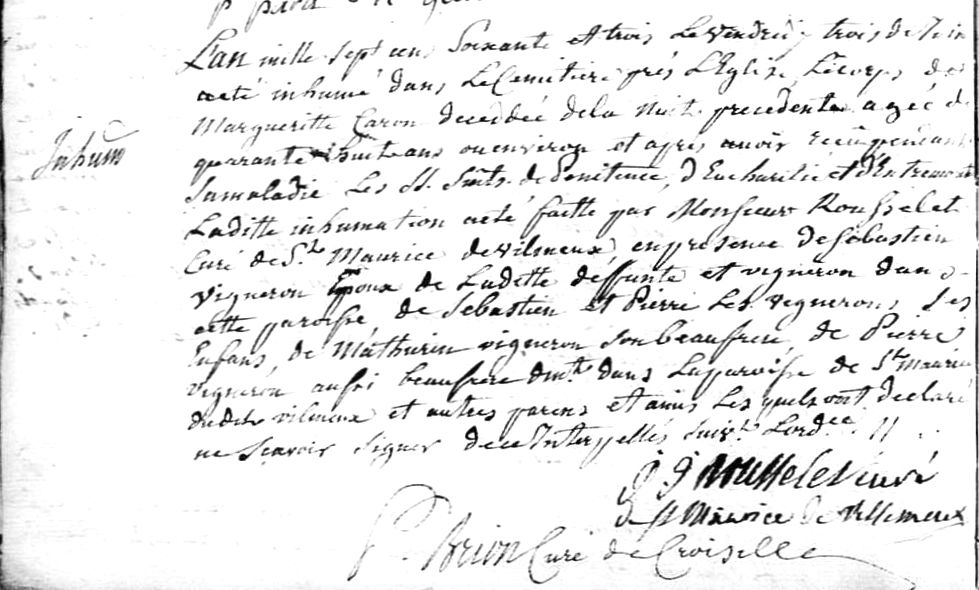 L'an mille sept cens Soixante et trois Le vendredy trois de Juin
a eté inhumé dans Le Cemitiere prés L'Eglise, Le corps de
Margueritte Caron decedée de la Nuit precedente agée de
Inhum
quarante huit ans ou environ et apres avoir recüe pendant
Sa maladie Les SS. Smts. de Penitence, d'Eucharistie et d'Extreme
Laditte inhumation a eté faitte par Monsieur Rousselet
Curé de St. Maurice de vilmeux, en presence de Sebastien
vigneron Epoux de Laditte deffunte et vigneron dans
cette paroisse, de Sebastien et Pierre Les vignerons, Ses
Enfans, de Mathurin vigneron Son beaufrere, de Pierre
vigneron aussi beaufrere dmt. dans La paroisse de St. Maurice
dudit vilmeux et autres parens et amis Les quels ont declaré
ne Scavoir Signer de ce Interpellés Suivt. Lordce. //
Rousselet Curé
de St Maurice de Villemeux
P. Brion Curé de Croiselle